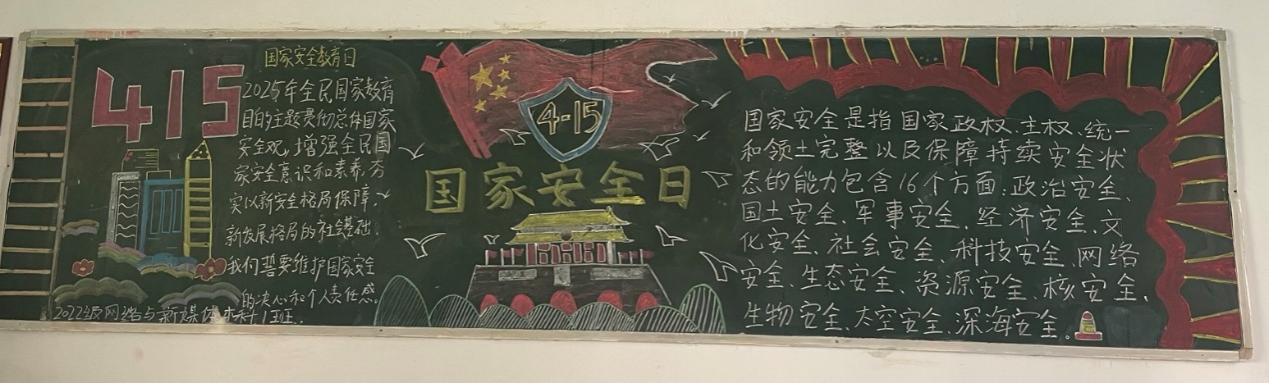 415
国家安全教育日
2025年全民国家教育
日的主题贯彻总体国家
安全观,增强全民国
家安全意识和素养,夯
实以新安全格局保障
新发展格局的社会基础。
我们要维护国家安全
的决心和个人责任感。
2022级网络与新媒体本科1班
4-15
国家安全日
国家安全是指国家政权、主权、统一
和领土完整以及保障持续安全状
态的能力包含16个方面:政治安全、
国土安全、军事安全、经济安全、文
化安全、社会安全、科技安全、网络
安全、生态安全、资源安全、核安全、
生物安全、太空安全、深海安全。